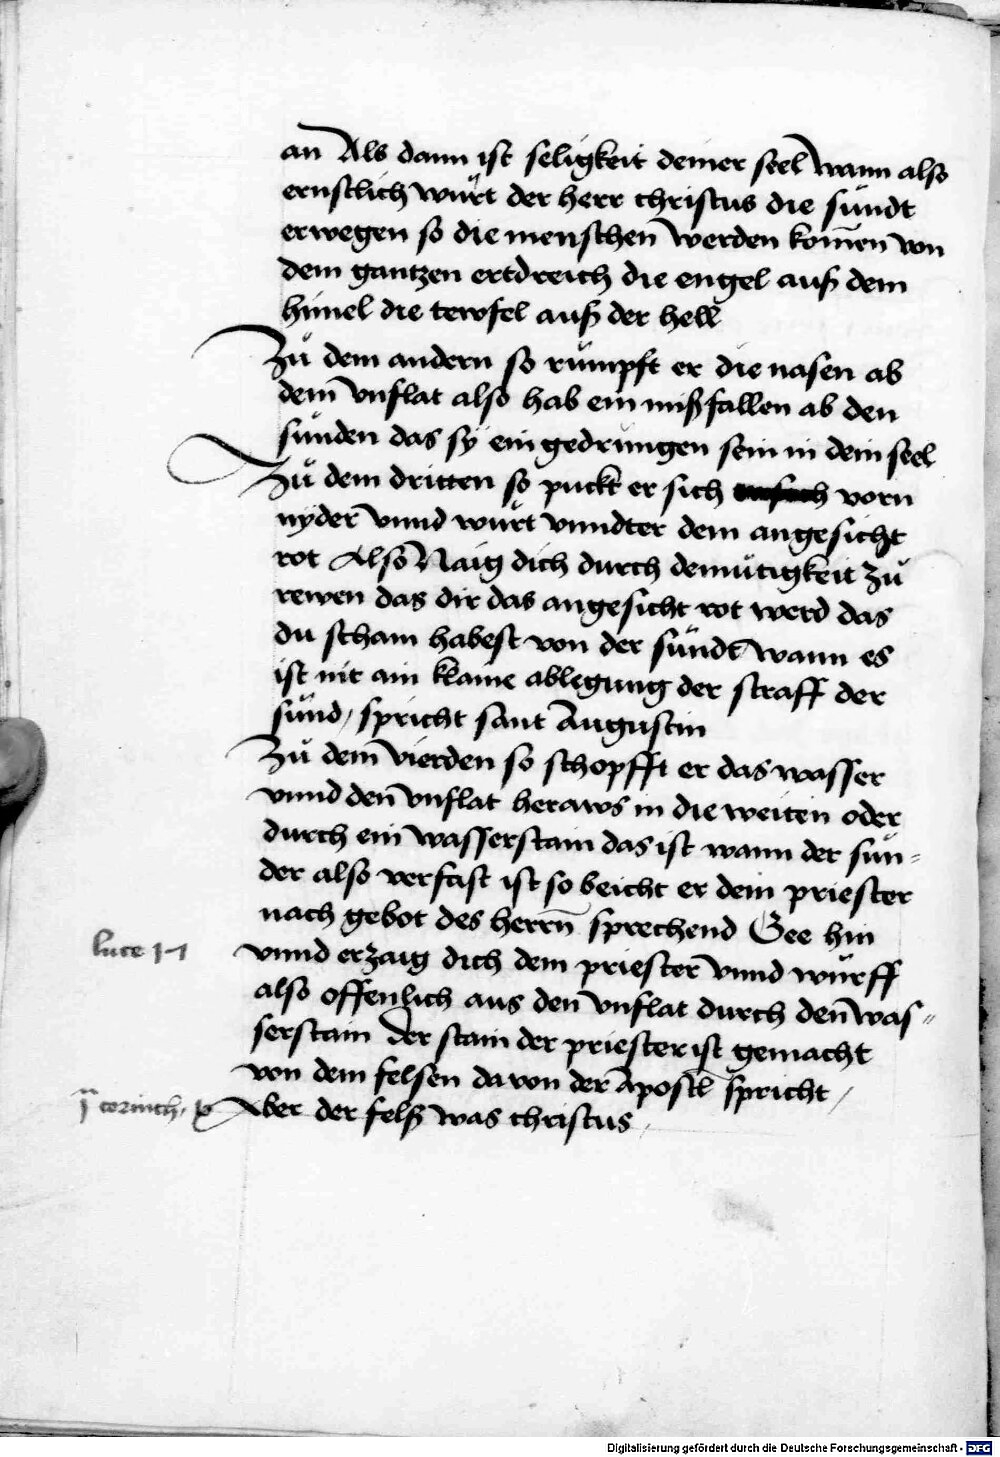 an Als dann ist seligkeit deiner seel wann also
ernstlich würt der herr christus die sündt
erwegen so die menschen werden kom̅en von
dem gantzen ertdreich die engel auß dem
him̅el die tewfel auß der hell
Zů dem andern so rümpft er die nasen ab
dem vnflat also hab ein mißfallen ab den
sünden das sy eingedrungen sein in dein seel
Zů dem dritten so puckt er sich vorn
nyder vnnd würt vnndter dem angesicht
rot Also Naig dich durch demütigkeit zů
rewen das dir das angesicht rot werd das
du scham habest von der sündt wann es
ist nit ain klaine ablegung der straff der
sünd / spricht sant Augustin
Zů dem vierden so schopfft er das wasser
vnnd den vnflat heraws in die weiten oder
durch ein wasserstain das ist wann der sün=
der also verfast ist so beicht er dem priester
nach gebot des herrn̅ sprechend Gee hin
luce 17 vnnd erzaig dich dem priester vnnd würff
also offenlich aus den vnflat durch den was=
serstain der stain der priester ist gemacht
von dem felsen davon der Apostl spricht /
j corinth. x Aber der felß was christus /
Digitalisierung gefördert durch die Deutsche Forschungsgemeinschaft - DFG